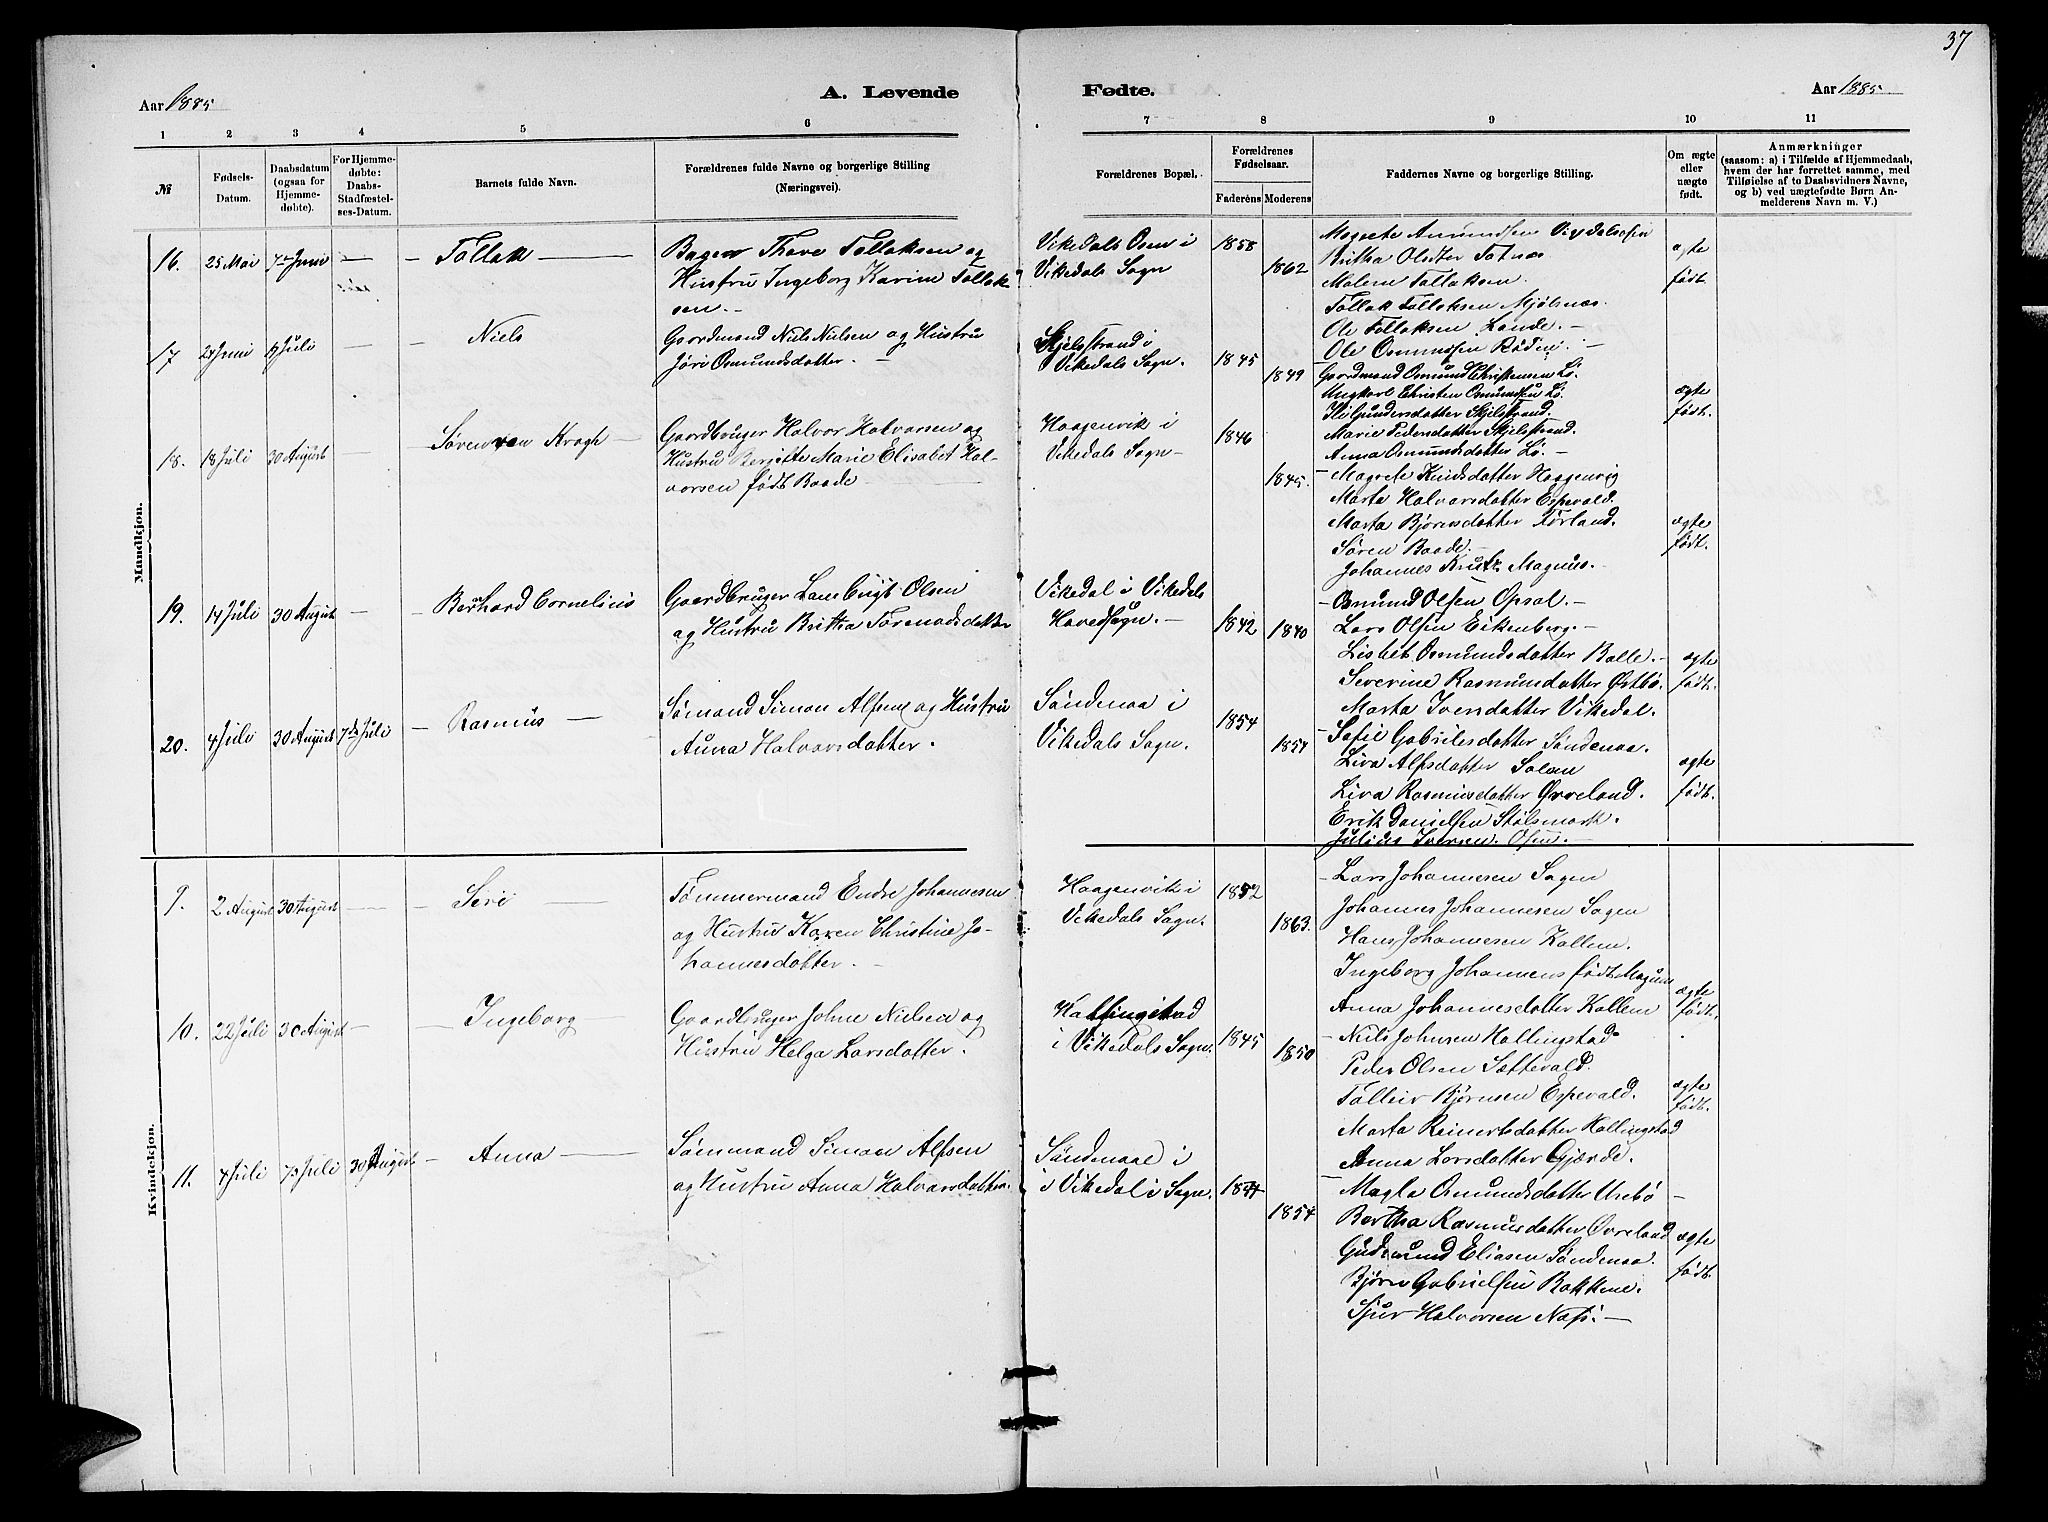 37
Aar 1885
A. Levende
Fødte.
Aar 1885
1 2 3 4 5 6 7 8 9 10 11
№
Fødsels-
Datum.
Daabsdatum
(ogsaa for
Hjemme-
døbte).
For Hjemme-
døbte:
Daabs-
Stadfæstel-
ses-Datum.
Barnets fulde Navn.
Forældrenes fulde Navne og borgerlige Stilling
(Næringsvei).
Forældrenes Bopæl.
Forældrenes
Fødselsaar.
Faderens Moderens
Faddernes Navne og borgerlige Stilling.
Om ægte
eller
uægte
født.
Anmærkninger
(saasom: a) i Tilfælde af Hjemmedaab,
hvem der har forrettet samme, med
Tilføielse af to Daabsvidners Navne,
og b) ved uægtefødte Børn An-
melderens Navn m. V.)
Mandkjøn.
16. 25 Mai 7de Juni — Tollak —
Bager Thore Tollaksen og
Hustru Ingeborg Karine Tollak-
sen. —
Vikedals Osen i
Vikedals Sogn
1858
1862
Magrete Amundsen Vikedalsosen
Britha Olsdter Fatnæs
Malene Tollaksen.
Tollak Tollaksen Mjølsnæs.
Ole Tollaksen Lande. —
Ole Osmundsen
ægte
født.
17 Juni Juli — Niels
Gaardmand Niels Nielsen og Hustru
Jøri Osmundsdatter. —
Skjelstrand i
Vikedals Sogn.
1845
1849
Gaardmand Osmund Christensen Lø.
Ungkarl Christen Osmundsen Lø.
Gundersdatter Skjelstrand.
Marie Pedersdatter Skjelstrand.
Anna Osmundsdatter Lø. —
ægte
født.
18. 18 Juli 30 August — Søren von Krogh —
Gaardbruger Halvor Halvorsen og
Hustru Bergitte Marie Elisabet Hal-
vorsen født Baade —
Haagenvik i
Vikedals Sogn —
1846
1845.
— Magrete Knudsdatter Haagenvig
Marta Halvorsdatter Espevold.
Marta Bjørnsdatter Førland.
Søren Baade. —
Johannes Magnus. —
ægte
født.
19. 14 Juli 30 August — Berhard Cornelius
Gaardbruger Olsen
og Hustru Britha
Vikedal i Vikedals
Hovedsogn. —
1842 1840
— Osmund Olsen Opsal. —
Lars Olsen Eikenberg. —
Lisbet Osmundsdatter Balle. —
Severine Rasmusdatter Østbø.
Marta Iversdatter Vikedal.
ægte
født.
20. 4 Juli 30 August 7de Juli — Rasmus —
Sømand Simon Alfsen og Hustru
Anna Halvorsdatter.
Søndenaa i
Vikedals Sogn.
1854
1854
— Sofie Gabrielsdatter Søndenaa.
Liva Alfsdatter
Liva Rasmusdatter Øvreland.
Erik Danielsen Stølsmark.
Julius Iversen. Osen. —
ægte
født.
Kvindekjøn.
9. 2 August 30 August — Siri —
Tømmermand Endre Johannesen
og Hustru Karen Christine Jo-
hannesdatter. —
Haagenvik i
Vikedals Sogn.
1852
1863.
— Lars Johannesen Sagen
Johannes Johannesen Sagen
Hans Johannesen Kallem.
Ingeborg Johannens født Magnus
Anna Johannesdatter Kallem
ægte
født.
10. 22 Juli 30 August — Ingeborg —
Gaardbruger Johne Nielsen og
Hustru Helga Larsdatter.
Hallingstad
i Vikedals Sogn.
1845
1850
— Niels Johnsen Hallingstad
Peder Olsen Sættevold.
Tolleiv Bjørnsen Espevold.
Marta Reinertsdatter Hallingstad
Anna Larsdatter Gjærde.
ægte
født.
11. 4 Juli 7de Juli 30 August — Anna —
Sømmand Simon Alfsen
og Hustru Anna Halvorsdatter.
Søndenaae i
i Vikedal i Sogn.
1854
— Magla Osmundsdatter Urebø —
Bertha Rasmusdatter Øvreland
Gudmund Eliasen Søndenaa.
Bjørn Gabrielsen Bakkene.
Sjur Halvorsen —
ægte
født.